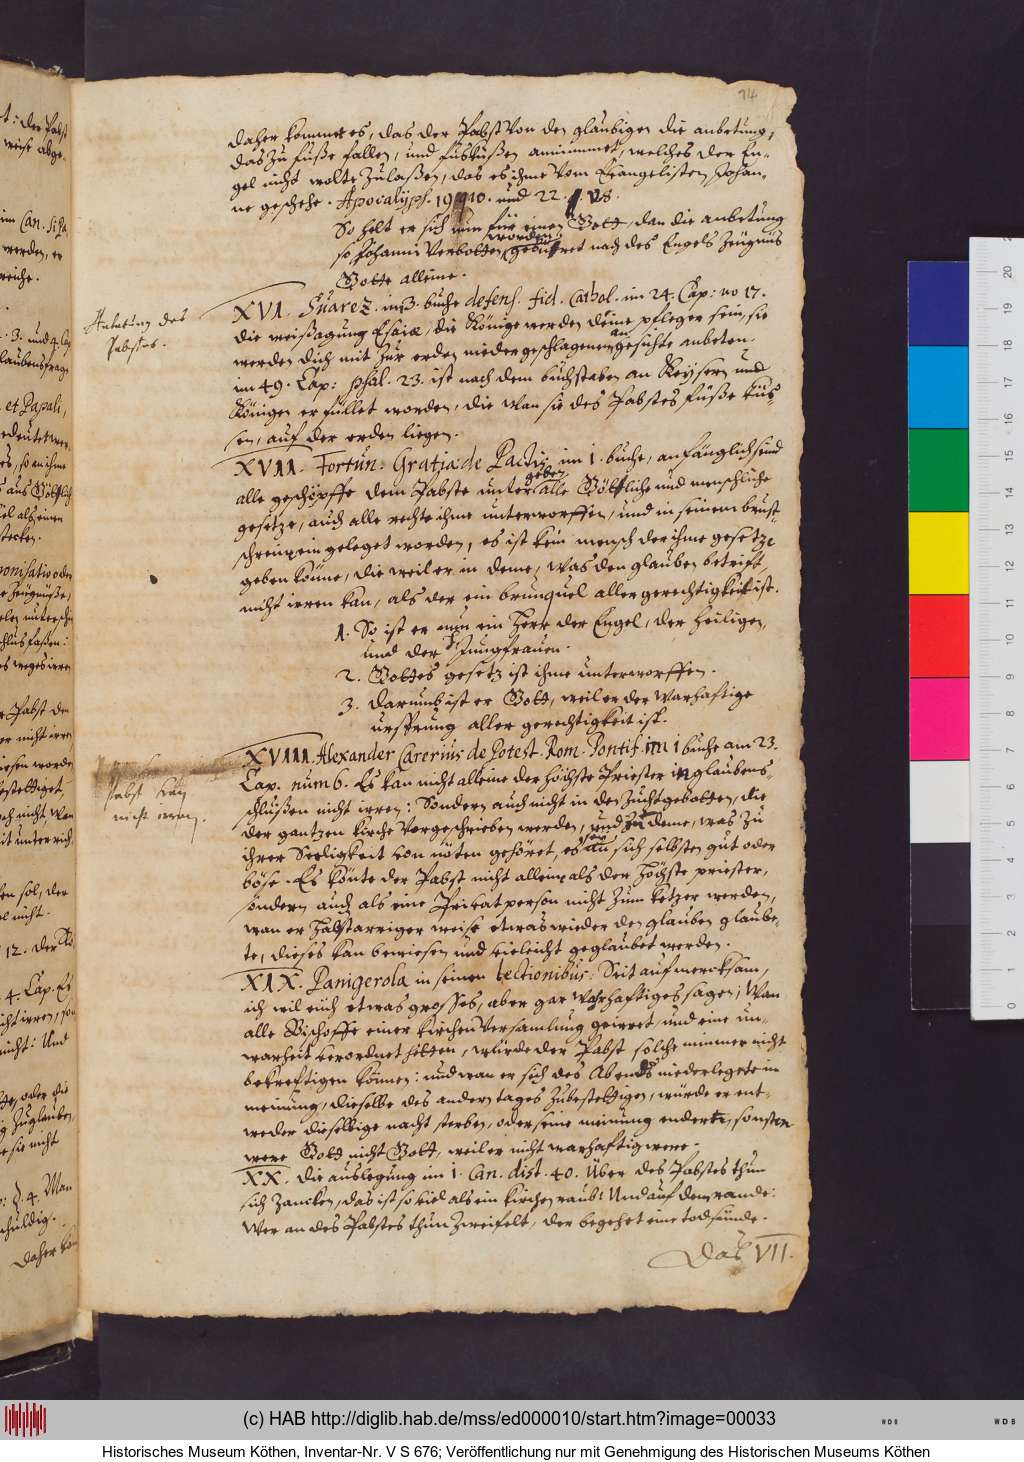 14
daher kommet es, das der Pabst von den gläubigen die anbetung,
das zu fuße fallen, und fußküßen annimmet, welches der En-
gel nicht wolte zulaßen, das es ihme vom Evangelisten Johan-
ne geschehe. Apocalÿps. 19 10. und 22. v 8.
So helt er sich nun für einen Gott, dan die anbetung
so Johanni verbotten, worden gebüret nach des Engels zeugnüs
Gotte alleine.
Anbetung des
Pabstes.
XVI. Suarez. im 3. buche defens. fid. Cathol. im 24. Cap: no 17.
die weißagung Esaiæ, die Könige werden deine pfleger sein, sie
werden dich mit zur erden niedergeschlagenem an gesichte anbeten.
im 49. Cap: psal. 23. ist nach dem buchstaben an Keÿsern und
Königen erfüllet worden, die wan sie des Pabstes füße küs-
sen, auf der erden liegen.
XVII. Fortun: Gratia: de Pactis im 1. buche, anfänglich seind
alle geschöpffe dem Pabste untergeben alle Göttliche und menschliche
gesetze, auch alle rechte ihme unterworffen, und in seinem brust-
schrein eingeleget worden, es ist kein mensch der ihme gesetze
geben könne, die weil er in deme, was den glauben betrift,
nicht irren kan, als der ein brunquel aller gerechtigkeit ist.
1. So ist er nun ein Herr der Engel, der Heiligen,
und der Jungfrauen.
2. Gottes gesetz ist ihme unterworffen.
3. darumb ist er Gott, weil er der warhaftige
ursprung aller gerechtigkeit ist.
Pabst kan
nicht irren.
XVIII. Alexander Carerius de Potest. Rom. Pontif. im 1 buche am 23.
Cap. num 6. Es kan nicht alleine der höchste Priester in glaubens-
schlüßen nicht irren: Sondern auch nicht in den zuchtgebotten, die
der gantzen kirche vorgeschrieben werden, und zu deme, was zu
ihrer Seeligkeit von nöten gehöret, es sich selbsten gut oder
böse. Es könte der Pabst nicht allein als der höchste priester,
sondern auch als eine Privat person nicht zum ketzer werden,
wan er halsstarriger weise etwas wieder den glauben glaube-
te, dieses kan bewiesen und vieleicht geglaubet werden.
XIX. Panigerola in seinen Lectionibus: Seit aufmercksam,
ich wil euch etwas grosses, aber gar wahrhaftiges sagen; Wan
alle Bischoffe einer kirchen versamlung geirret und eine un-
warheit verordnet hetten, würde der Pabst solche nimmer nicht
bekreftigen können: und wan er sich des Abends niederlegete in
meinung, dieselbe des andern tages zubestettigen, würde er ent-
weder dieselbige nacht sterben, oder seine meinung endern, sonsten
were Gott nicht Gott, weil er nicht warhaftig were.
XX. die auslegung im 1. Can. dist. 40. Über des Pabstes thun
sich zancken, das ist so viel als ein kirchenraub! Und auf dem rande:
Wer an des Pabstes thun zweifelt, der begehet eine todsünde.
Das VII.
(c) HAB http://diglib.hab.de/mss/ed000010/start.htm?image=00033
Historisches Museum Köthen, Inventar-Nr. V S 676; Veröffentlichung nur mit Genehmigung des Historischen Museums Köthen